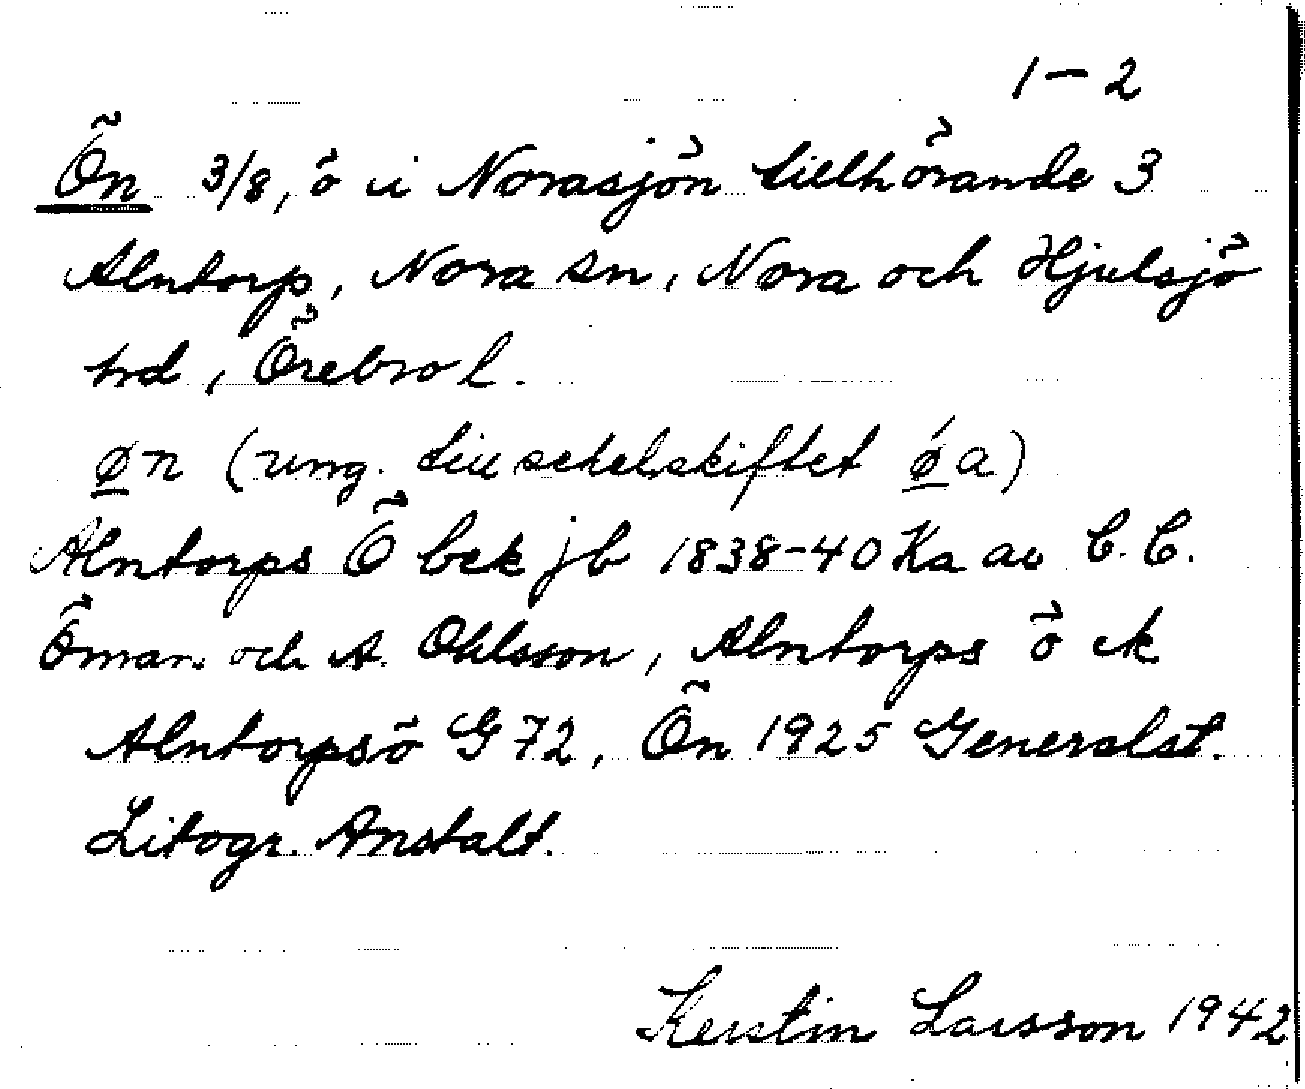 1-2
Ön 3/8, ö i Norasjön tillhörande 3
Alntorp, Nora sn, Nora och Hjulsjö
hrd, Örebro l.
øn (ung. till sekelskiftet ǿa)
Alntorps Ö bek jb 1838-40 Ka av C. C.
Öman och A. Ohlsson, Alntorps ö ek
Alntorpsö G 72, Ön 1925 Generalst.
Litogr. Anstalt.
Kerstin Larsson 1942